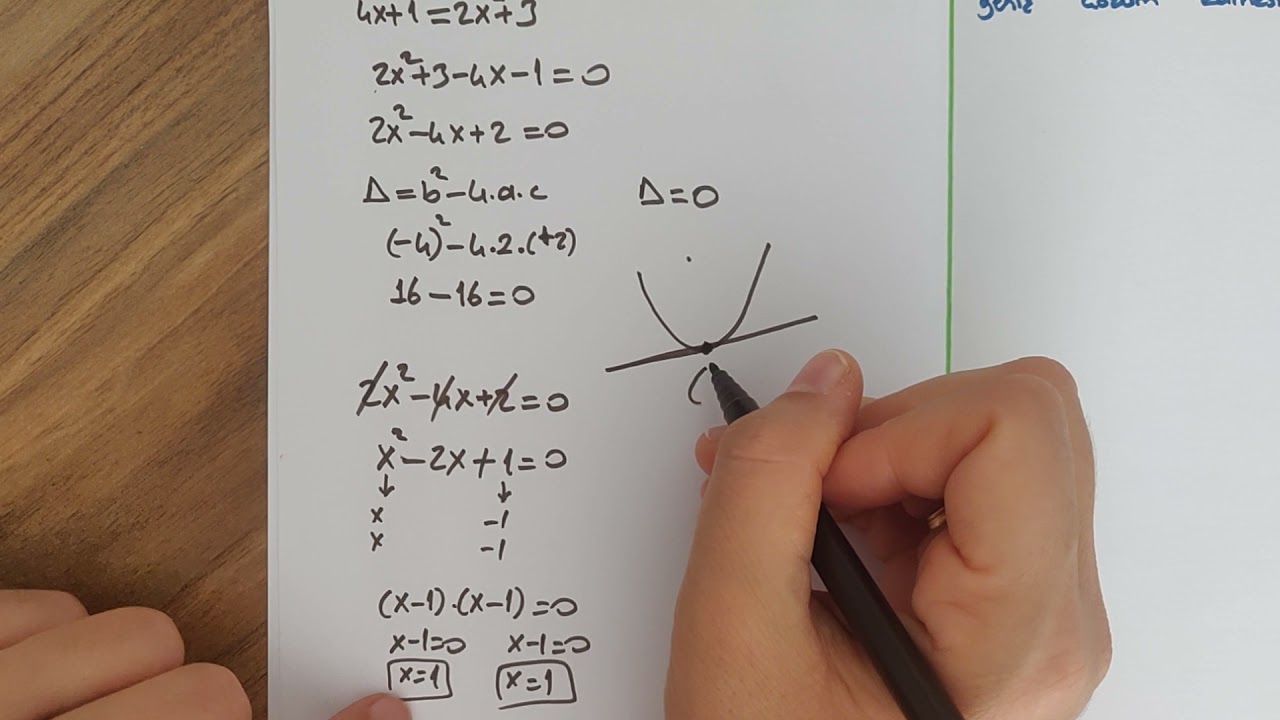 4x+1=2x²+3
2x²+3-4x-1=0
2x²-4x+2=0
Δ=b²-4.a.c
Δ=0
(-4)²-4.2.(+2)
16-16=0
2x²-4x+2=0
(
x²-2x+1=0
↓ ↓
x -1
x -1
(x-1).(x-1)=0
x-1=0 x-1=0
x=1 x=1